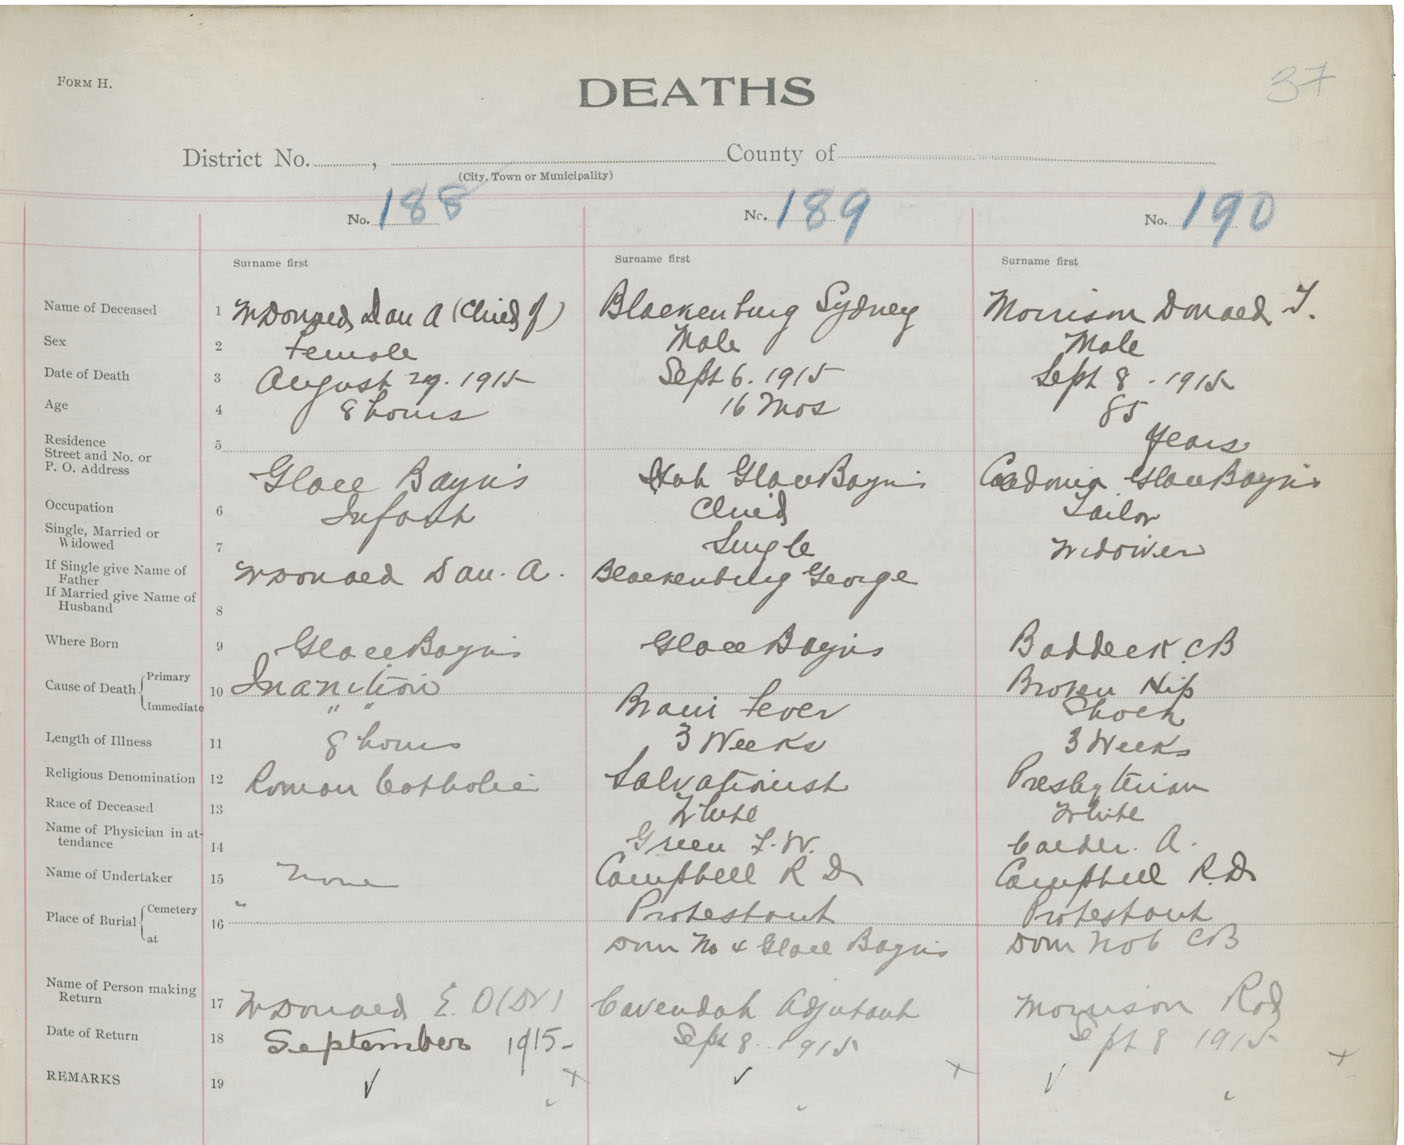 FORM H.
DEATHS
37
District No. , County of
(City, Town or Municipality)
No. 188 No. 189 No. 190
Surname first Surname first Surname first
Name of Deceased 1 McDonald Dan A (Child of) Blackenburg Sydney Morrison Donald T.
Sex 2 Female Male Male
Date of Death 3 August 29. 1915 Sept 6. 1915 Sept 8. 1915
Age 4 8 hours 16 Mos 85
Residence 5 Years
Street and No. or
P. O. Address Glace Bay NS Glace Bay NS Caledonia Glace Bay NS
Occupation 6 Infant Child Tailor
Single, Married or
Widowed 7 Single Widower
If Single give Name of
Father McDonald Dan. A. Blackenburg George
If Married give Name of
Husband 8
Where Born 9 Glace Bay NS Glace Bay NS Baddeck CB
Cause of Death Primary 10 Inanition Broken Hip
Immediate " " Brain Fever Shock
Length of Illness 11 8 hours 3 Weeks 3 Weeks
Religious Denomination 12 Roman Catholic Salvationist Presbyterian
Race of Deceased 13 White White
Name of Physician in at-
tendance 14 Green F. W. Calder. A.
Name of Undertaker 15 None Campbell R D Campbell R. D
Place of Burial Cemetery 16 " Protestant Protestant
at Dom No 4 Glace Bay NS Dom No 6 CB
Name of Person making
Return 17 McDonald E. O (Dr) Cavendah Adjutant Morrison Rod
Date of Return 18 September 1915 Sept 8. 1915 Sept 8 1915
REMARKS 19